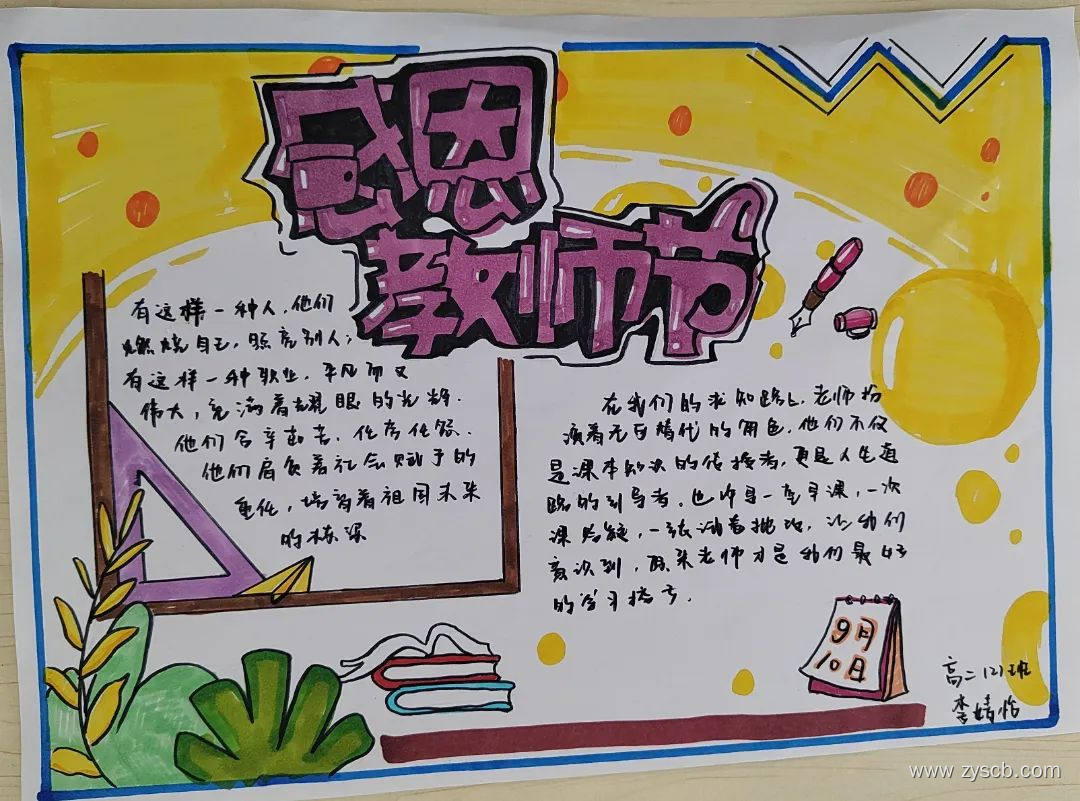 感恩
教师节
有这样一种人，他们
燃烧自己，照亮别人；
有这样一种职业，平凡而又
伟大，充满着耀眼的光辉．
他们含辛茹苦．任劳任怨．
他们肩负着社会赋予的
重任，培育着祖国未来
的栋梁
在我们的求知路上，老师扮
演着无可替代的角色，他们不仅
是课本知识的传授者，更是人生道
路的引导者．也许是一堂早课，一次
课后 ，一张 ，让我们
意识到，原来老师才是我们最好
的学习搭子．
9月
10日
高二(2)班
李婧怡
www.zyscb.com